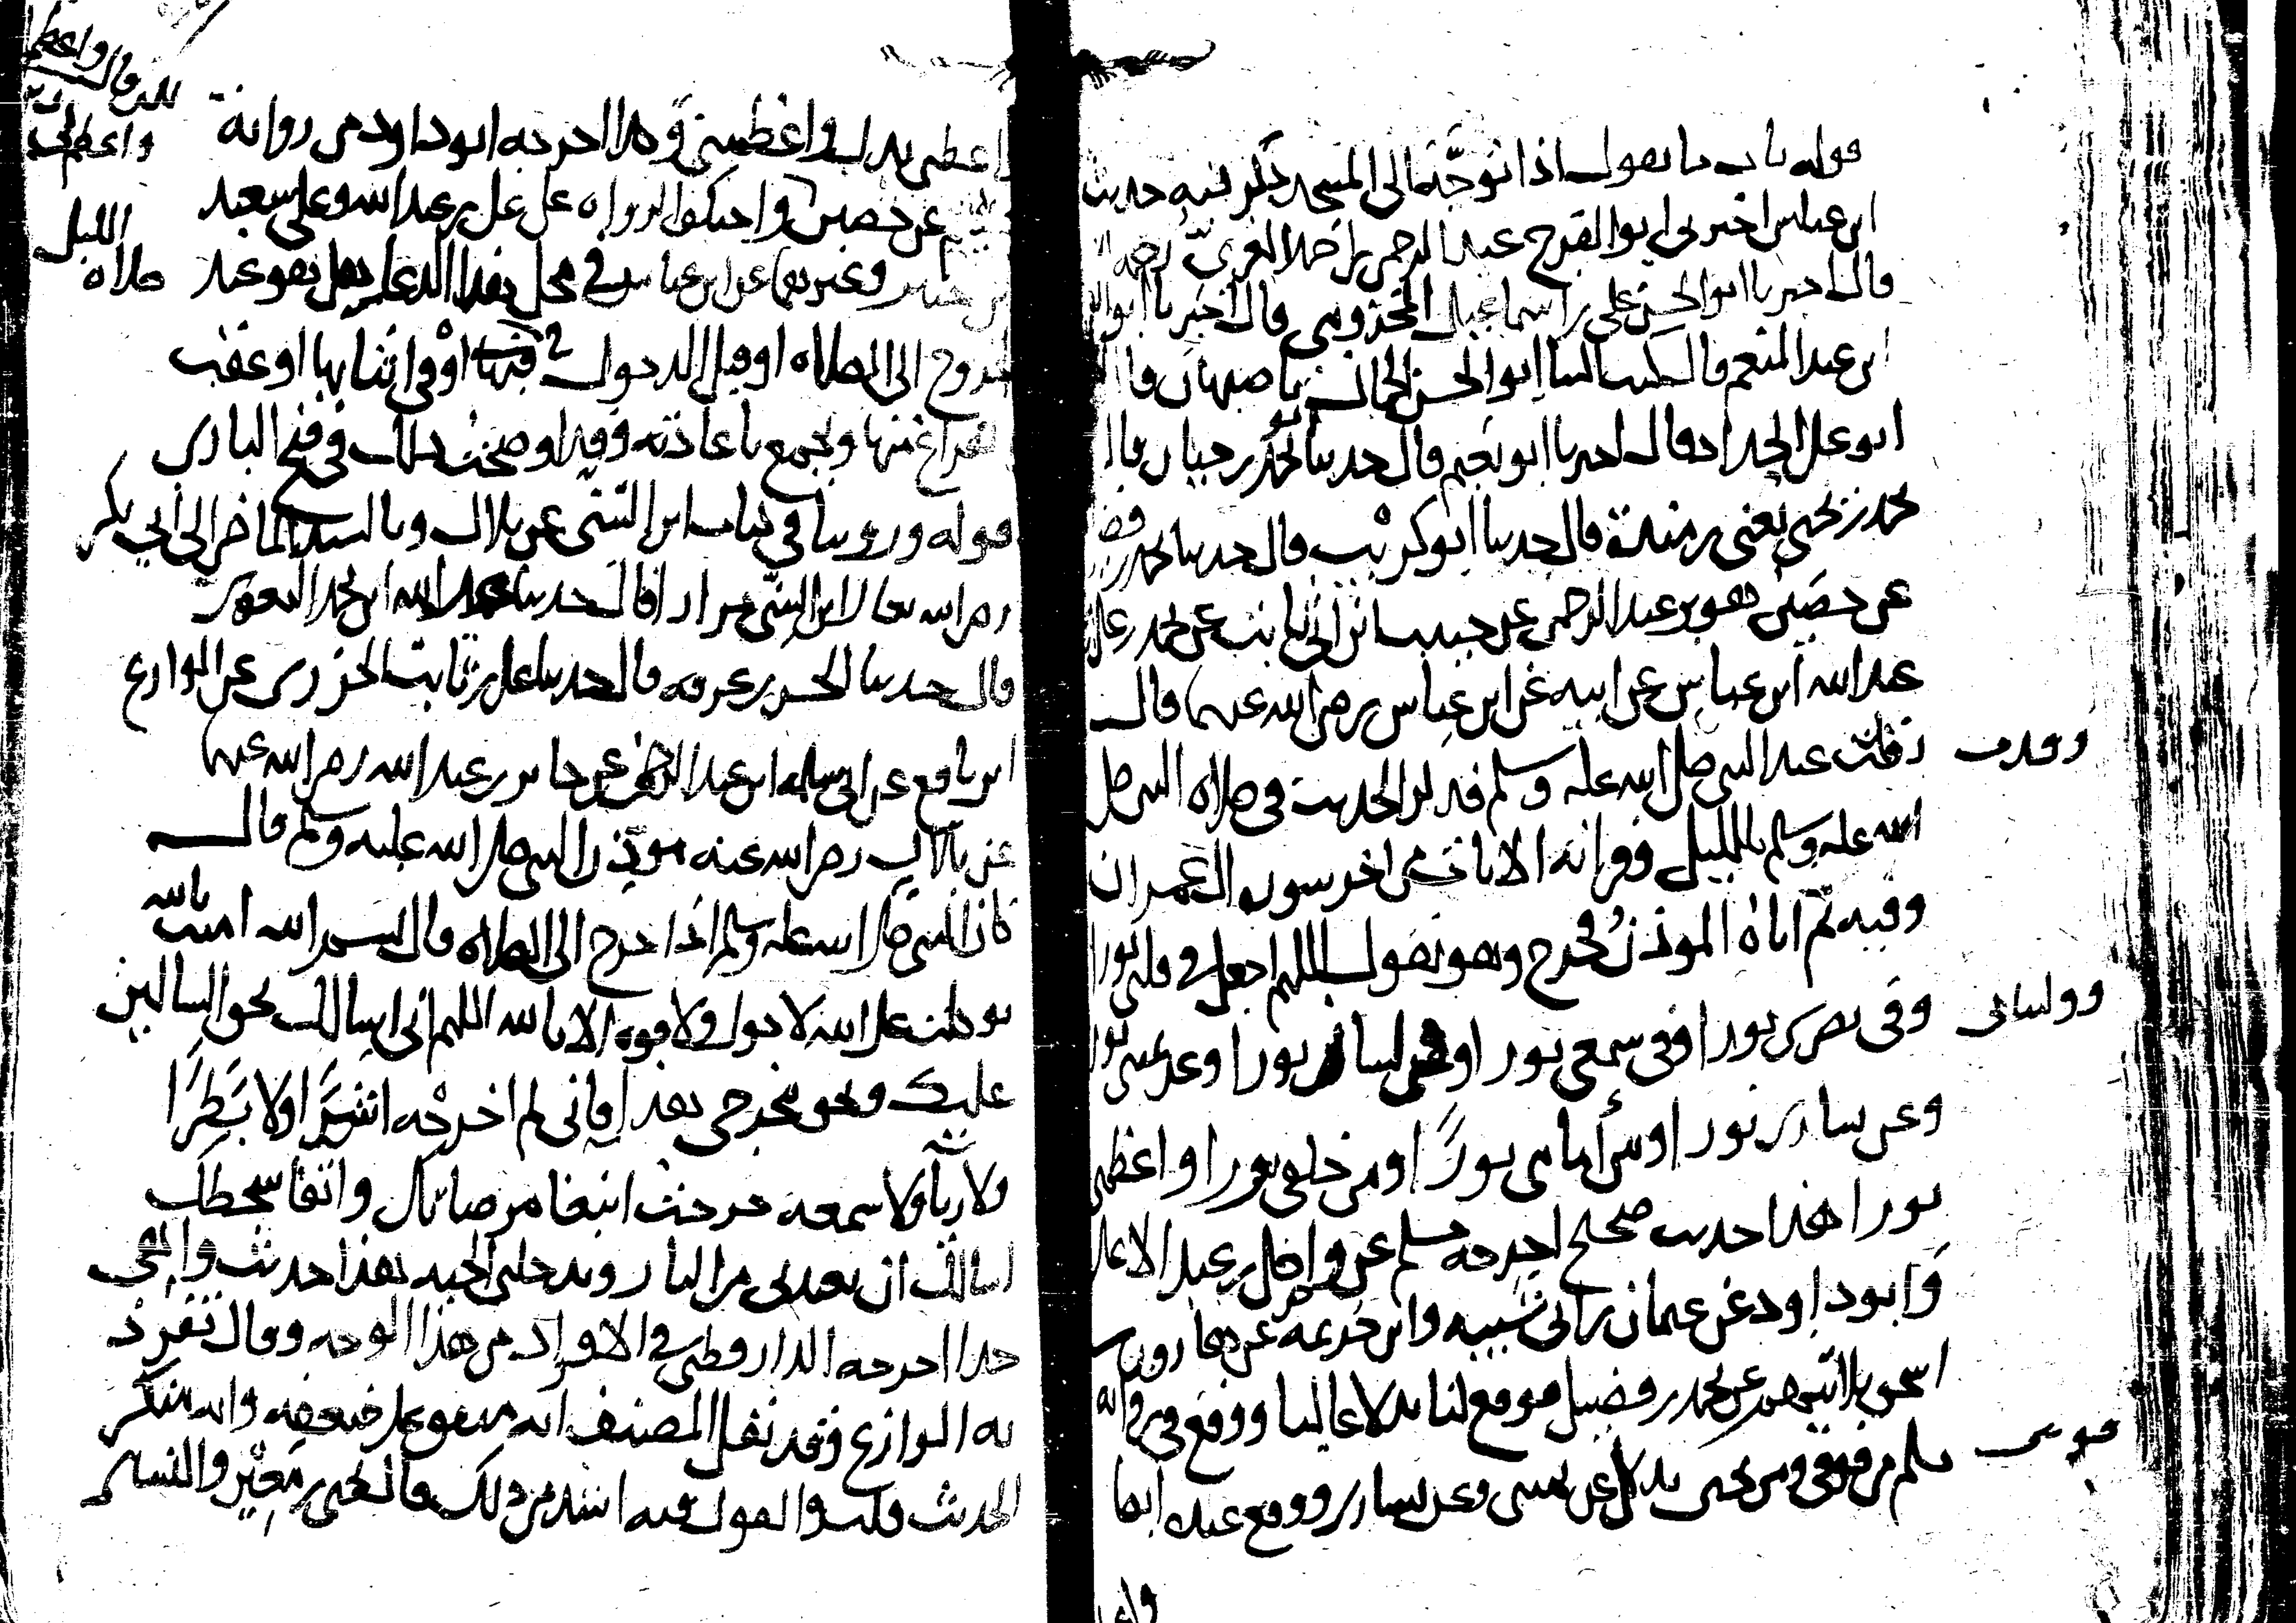 قوله باب ما يقول اذا توجه الى المسجد ذكر فيه حديث
ابن عباس اخبرني ابو الفرج عبد الرحمن بن احمد الغزي رحمه
قال اخبرنا ابو الحسن علي بن اسماعيل المخزومي قال اخبرنا ابو
ابن عبد المنعم قال كتب الينا ابو الحسن الجمال باصبهان قال
ابو علي الحداد قال اخبرنا ابو نعيم قال حدثنا ابو محمد بن حيان قال
محمد بن يحيى يعني بن مندة قال حدثنا ابو كريب قال حدثنا محمد بن فضيل
عن حصين هو بن عبد الرحمن عن حبيب بن ابي ثابت عن محمد بن علي بن
عبد الله ابن عباس عن ابيه عن ابن عباس رضي الله عنهما قال
رقدت عند النبي صلى الله عليه وسلم فذكر الحديث في صلاة النبي صلى
الله عليه وسلم بالليل وقراءته الايات من اخر سورة ال عمران
وفيه ثم اتاه الموذن فخرج وهو يقول اللهم اجعل في قلبي نورا
وفي بصري نورا وفي سمعي نورا وفي لساني نورا وعن يميني نورا
وعن يساري نورا ومن أمامي نورًا ومن خلفي نورا واعظم لي
نورا هذا حديث صحيح اخرجه مسلم عن واصل بن عبد الاعلى
وابو داود عن عثمان بن ابي شيبة وابن خزيمة عن هارون بن
اسحق ثلاثتهم عن محمد بن فضيل فوقع لنا بدلا عاليا ووقع في رواية
مسلم من فوقي ومن تحتي بدل عن يميني وعن يساري ووقع عنده ايضا
وقدت
ولساني
فوقي
واعـ
واعطني بدل واعظم لي وهكذا اخرجه ابو داود من رواية
عن حصين واختلف الرواة على علي بن عبد الله وعلى سعيد
بن جبير وغيرهما عن ابن عباس في محل هذا الدعاء هل هو عند
الخروج الى الصلاة او قبل الدخول فيها او في اثنائها او عقب
الفراغ منها ويجمع باعادته وقد اوضحت ذلك في فتح الباري
قوله وروينا في كتاب ابن السني عن بلال وبالسند الماضي الى ابي بكر
رضي الله تعالى ابن السني مرارا قال حدثنا عبد الله ابن محمد البغوي
قال حدثنا الحسن بن عرفة قال حدثنا علي بن ثابت الجزري عن الوازع
ابن نافع عن ابي سلمة ابن عبد الرحمن عن جابر بن عبد الله رضي الله عنهما
عن بلال رضي الله عنه موذن النبي صلى الله عليه وسلم قال
كان النبي صلى الله عليه وسلم اذا خرج الى الصلاة قال بسم الله امنت بالله
توكلت على الله لا حول ولا قوة الا بالله اللهم اني اسالك بحق السالين
عليك وبحق مخرجي هذا فاني لم اخرجه اشرًا ولا بطرًا
ولا رياء ولا سمعة خرجت ابتغا مرضاتك واتقا سخطك
اسالك ان تعيذني من النار وتدخلني الجنة هذا حديث واهي
جدا اخرجه الدارقطني في الافراد من هذا الوجه وقال تفرد
به الوازع وقد نقل المصنف انه متفق على ضعفه وانه منكر
الحديث قلت والقول فيه اشد من ذلك قال يحيى بن معين والنسائي
واعظم لي
الليل
صلاة